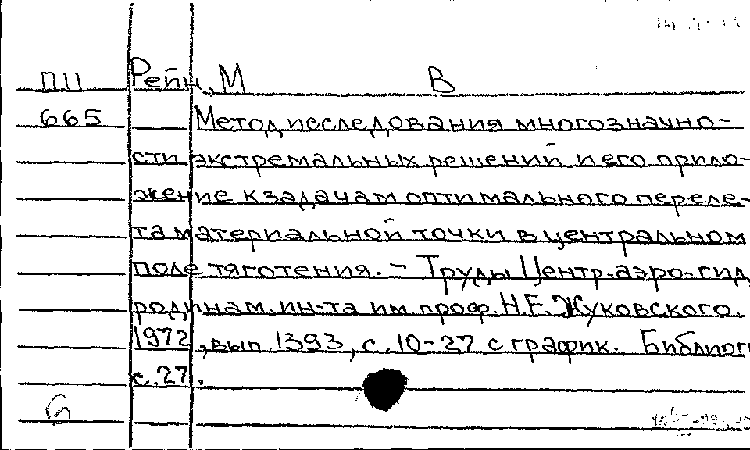 ПII Рейн, М В
665 Метод исследования многозначно-
сти экстремальных решений и его прило-
жение к задачам оптимального переле-
та материальной точки в центральном
поле тяготения. - Труды Центр. аэро-гид
родинам. ин-та им проф. Н.Е. Жуковского.
1972, вып 1393, с. 10-27 с график. Библиог
с. 27.